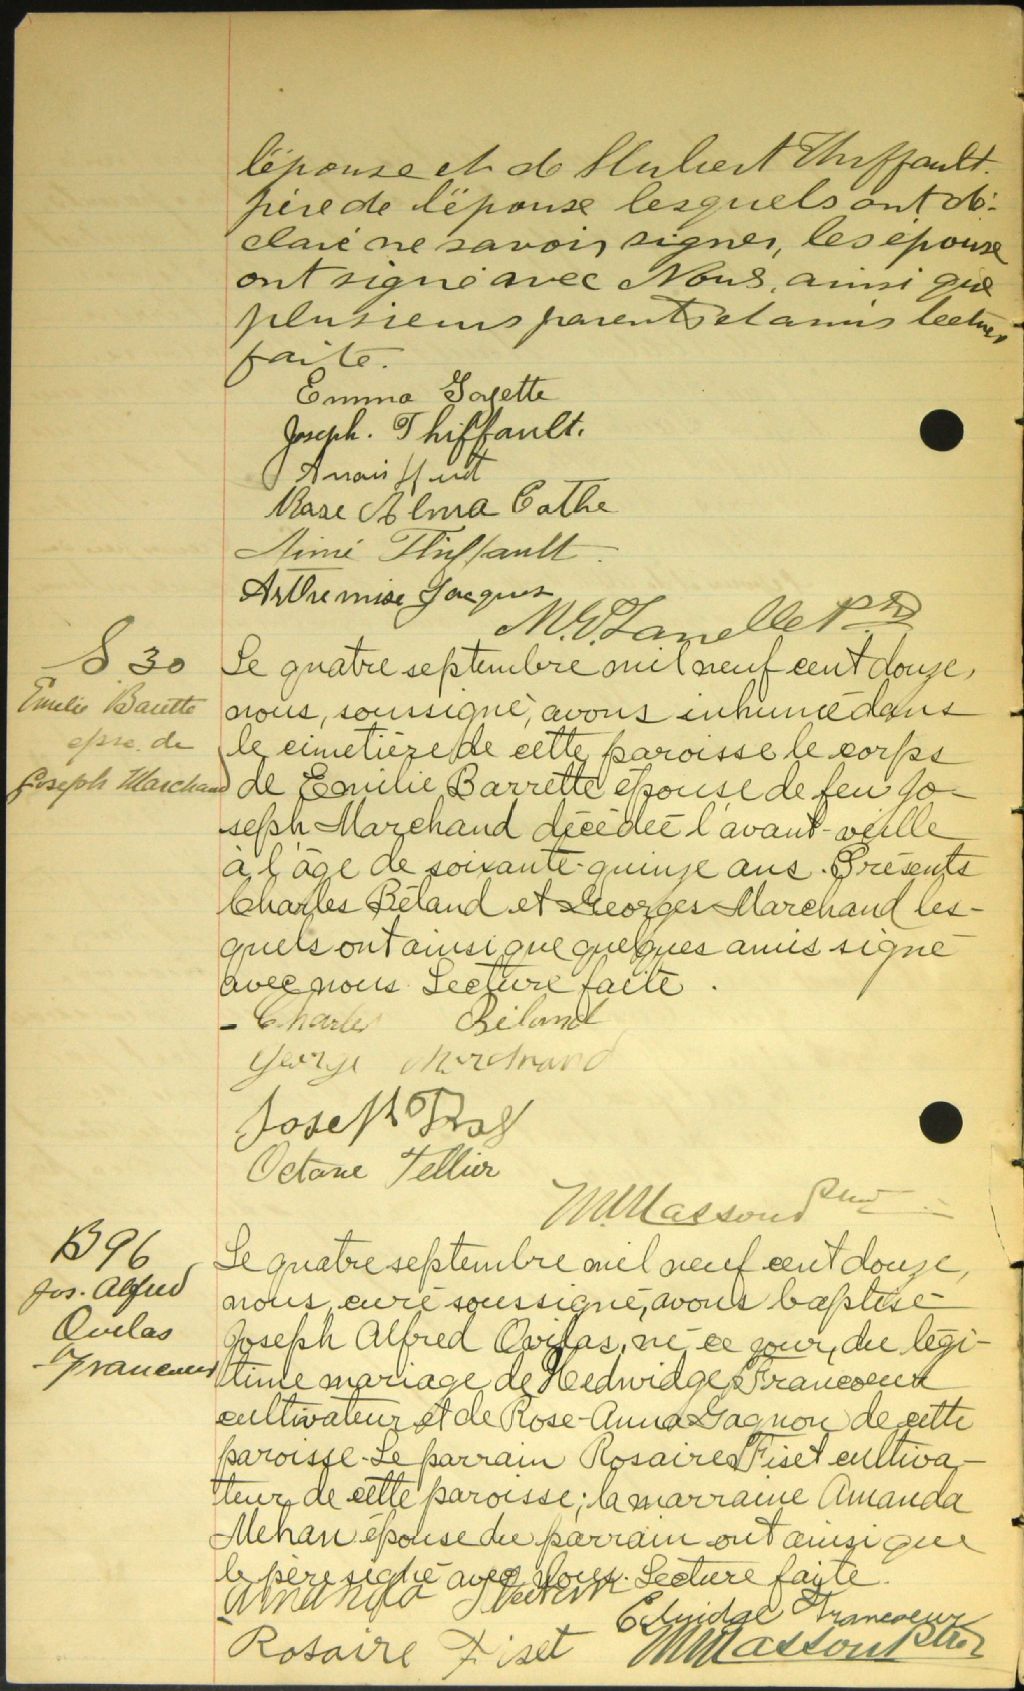 l'épouse et de Hubert Thiffault.
père de l'épouse lesquels ont dé-
claré ne savoir signer, les épouse
ont signé avec Nous, ainsi que
plusieurs parents et amis lecture
faite.
Emma Goyette
Joseph. Thiffault.
Rose Alma Cothe
Aimé Thiffault
Arthremise Jacques
S 30
Emilie Barette
epse. de
Joseph Marchand
Le quatre septembre mil neuf cent douze,
nous, soussigné, avons inhumé dans
le cimetière de cette paroisse le corps
de Emilie Barrette épouse de feu Jo-
seph Marchand décédée l'avant-veille
à l'âge de soixante-quinze ans. Présents
Charles Béland et Georges Marchand les-
quels ont ainsi que quelques amis signé
avec nous Lecture faite.
- Charles Béland
George Marchand
Joseph
Octave Tellier
M. Masson Ptre
B 96
Jos. Alfred
Ovilas
Francoeur
Le quatre septembre mil neuf cent douze,
nous, curé soussigné, avons baptisé
Joseph Alfred Ovilas, né ce jour, du légi-
time mariage de Hedwidge Francoeur
cultivateur et de Rose-Anna Gagnon de cette
paroisse. Le parrain Rosaire Fiset cultiva-
teur de cette paroisse; la marraine Amanda
Mehan épouse du parrain ont ainsi que
le père signé avec nous. Lecture faite.
Amanda
Edwidge Francoeur
Rosaire Fiset
M Masson Ptre